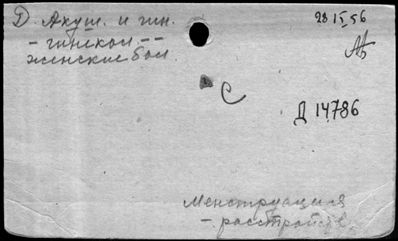 Д. Акуш. и гин.
28 IX 56
- гинекол --
АБ
женские бол.
С
Д 14786
Менструация
- расстройств.